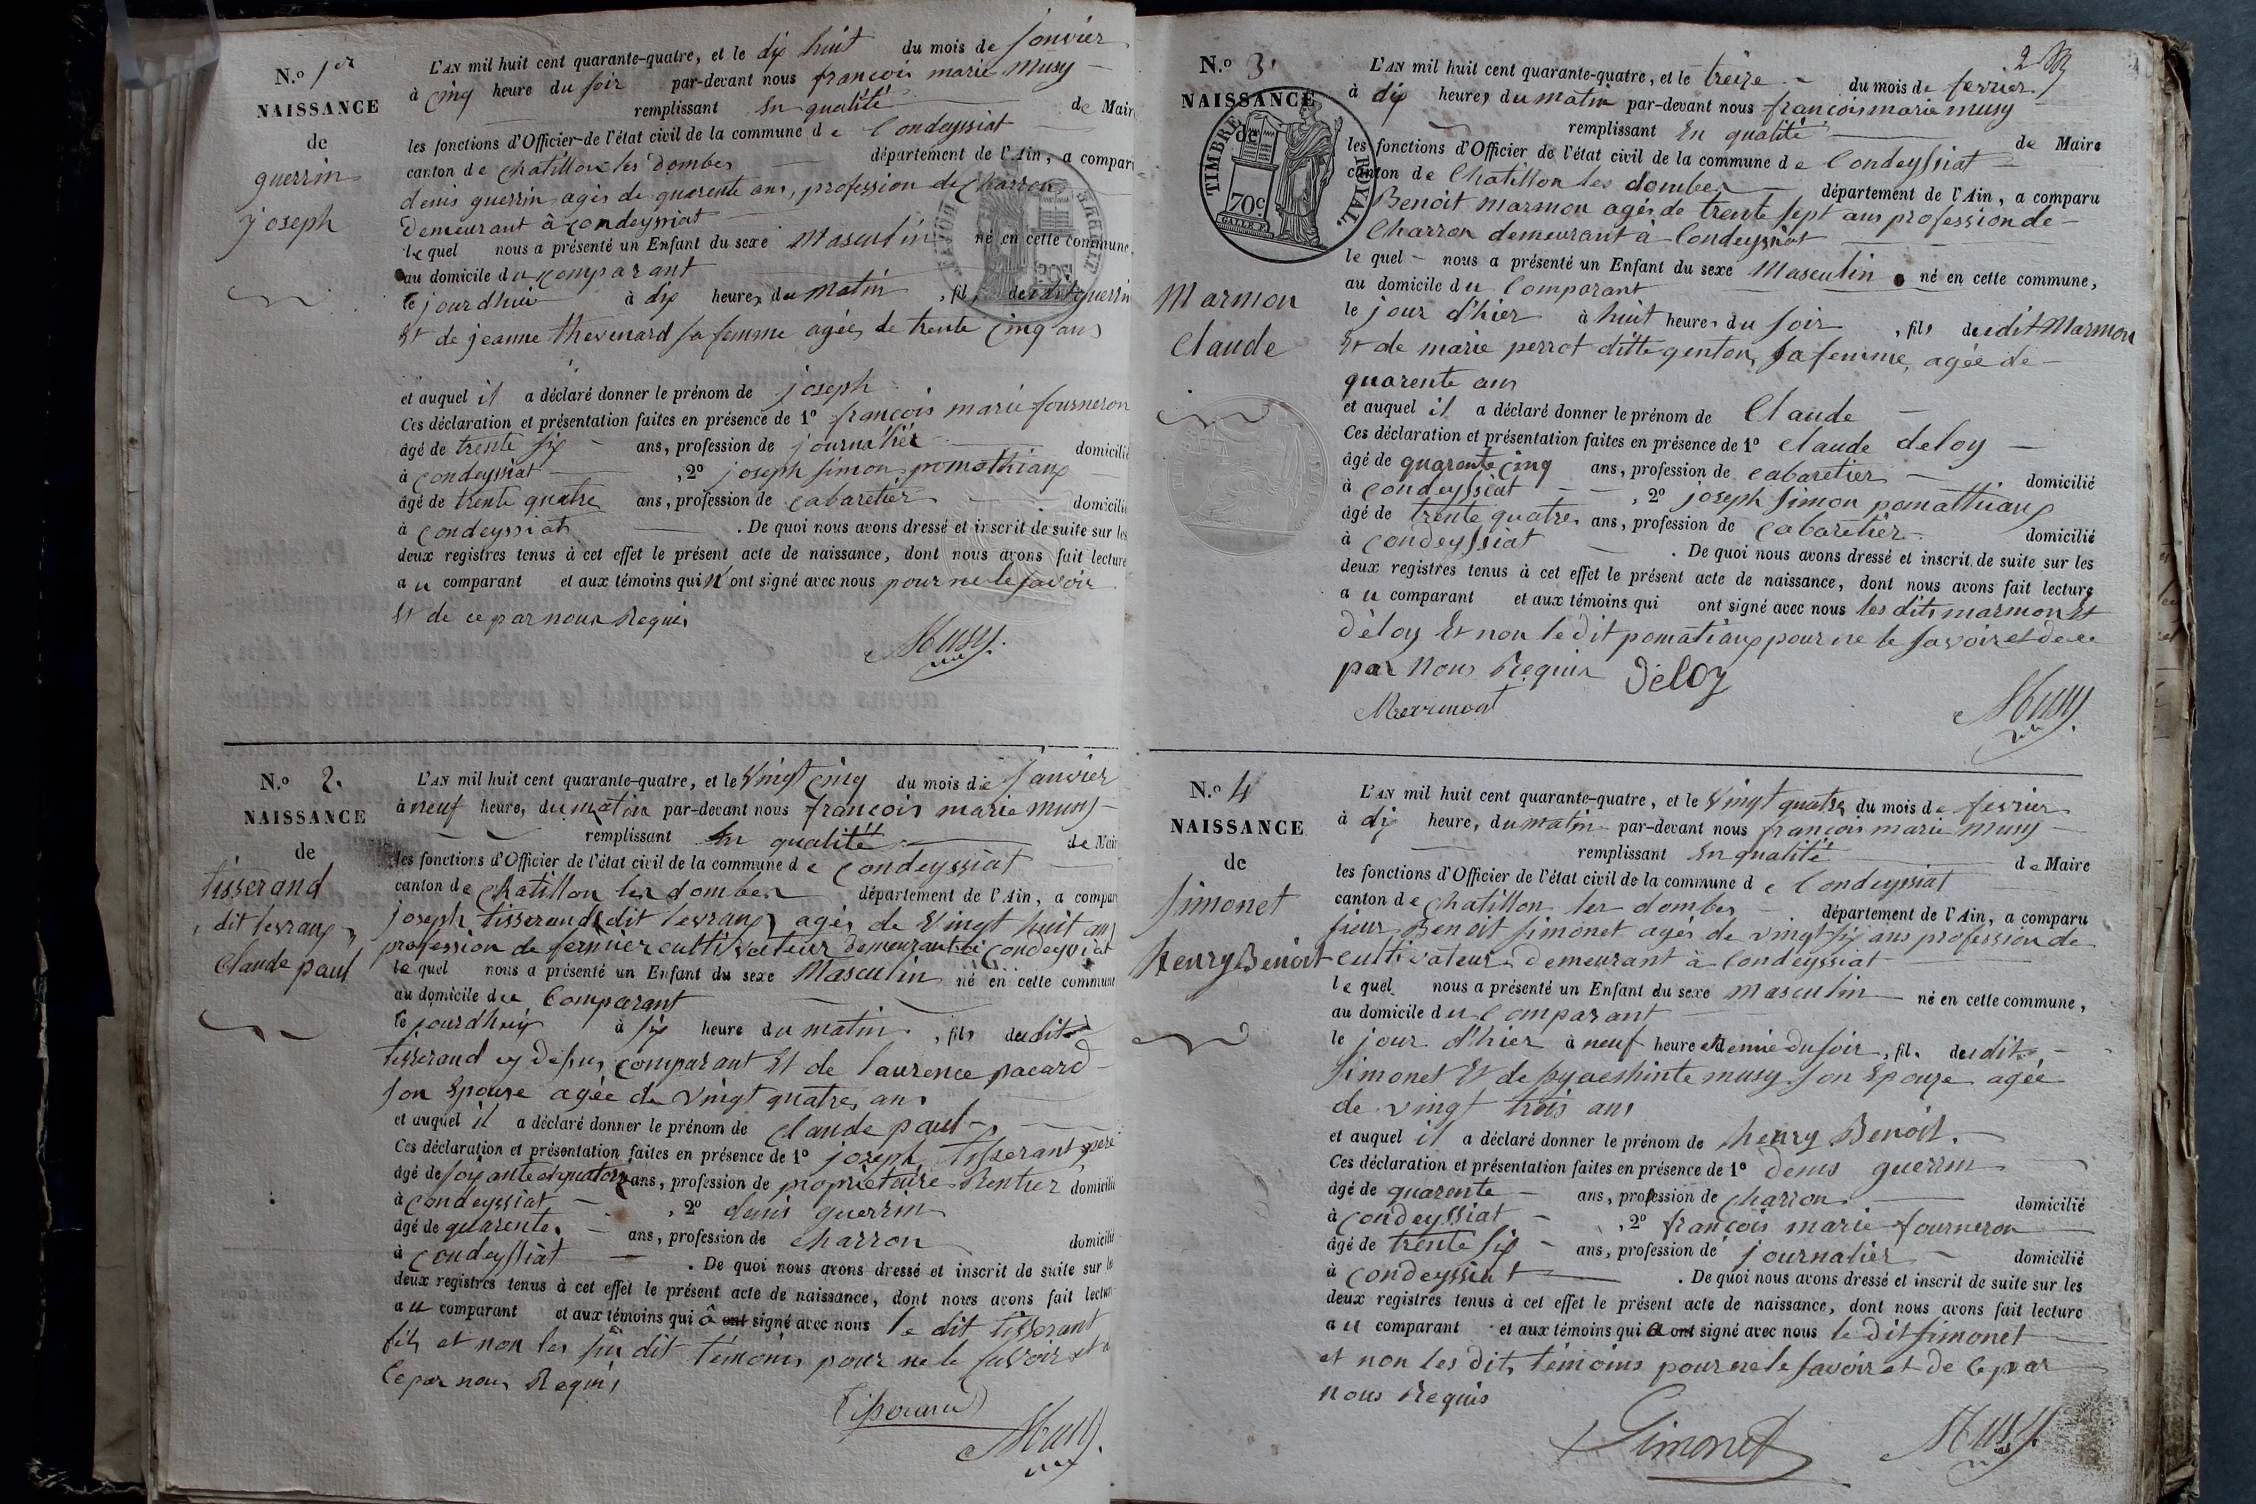 N.o 1er
NAISSANCE
de
guerrin
joseph
L'AN mil huit cent quarante-quatre, et le dix huit du mois de janvier
à cinq heure du soir par-devant nous françois marie Musy
remplissant En qualité de Maire
les fonctions d'Officier de l'état civil de la commune de Condeyssiat
canton de chatillon les dombes département de l'Ain, a comparu
denis guerrin agés de quarente ans, profession de Charron
Demeurant à condeyssiat
le quel nous a présenté un Enfant du sexe Masculin né en cette commune,
au domicile du comparant
le jourdhui à dix heures du matin, fils dudit guerrin
Et de jeanne thevenard sa femme agée de trente cinq ans
et auquel il a déclaré donner le prénom de joseph
Ces déclaration et présentation faites en présence de 1o françois marie fourneron
âgé de trente six ans, profession de journalier domicilié
à condeyssiat, 2o joseph simon pomathiaux
âgé de trente quatre ans, profession de cabaretier domicilié
à condeyssiat. De quoi nous avons dressé et inscrit de suite sur les
deux registres tenus à cet effet le présent acte de naissance, dont nous avons fait lecture
au comparant et aux témoins qui n'ont signé avec nous pour ne le savoir
Et de ce par nous Requis
Musy
N.o 2.
NAISSANCE
de
tisserand
dit levraux
Claude paul
L'AN mil huit cent quarante-quatre, et le Vingt cinq du mois de Janvier
à neuf heure, du matin par-devant nous françois marie musy
remplissant En qualité de Maire
les fonctions d'Officier de l'état civil de la commune de Condeyssiat
canton de chatillon les dombes département de l'Ain, a comparu
joseph tisserand (dit levraux) agés de Vingt huit ans
profession de fermier cultivateur demeurant à Condeyssiat
le quel nous a présenté un Enfant du sexe Masculin né en cette commune
au domicile du Comparant
le jourdhuy à six heure du matin, fils dudit
tisserand cy dessus comparant Et de laurence pacard
son Epouse agée de Vingt quatre ans
et auquel il a déclaré donner le prénom de claude paul
Ces déclaration et présentation faites en présence de 1o joseph tisserant père
âgé de soixante et quatorze ans, profession de propriétaire Rentier domicilié
à condeyssiat, 2o denis guerrin
âgé de quarente ans, profession de charron domicilié
à condeyssiat. De quoi nous avons dressé et inscrit de suite sur les
deux registres tenus à cet effet le présent acte de naissance, dont nous avons fait lecture
au comparant et aux témoins qui à ont signé avec nous le dit tisserant
fils et non les su dit témoins pour ne le savoir et de
Ce par nous Requis
Tisserand
Musy
2
N.o 3
NAISSANCE
de
TIMBRE ROYAL
70c
Marmon
claude
L'AN mil huit cent quarante-quatre, et le treize du mois de fevrier
à dix heures du matin par-devant nous françois marie musy
remplissant En qualité de Maire
les fonctions d'Officier de l'état civil de la commune de Condeyssiat
canton de Chatillon les dombes département de l'Ain, a comparu
Benoit marmon agés de trente sept ans profession de
Charron demeurant à Condeyssiat
le quel nous a présenté un Enfant du sexe Masculin né en cette commune,
au domicile du Comparant
le jour d'hier à huit heures du soir, fils dudit Marmon
Et de marie perrot ditte genton sa femme, agée de
quarente ans
et auquel il a déclaré donner le prénom de Claude
Ces déclaration et présentation faites en présence de 1o claude deloy
âgé de quarente cinq ans, profession de cabaretier domicilié
à condeyssiat, 2o joseph simon pomathiaux
âgé de trente quatre ans, profession de Cabaretier domicilié
à condeyssiat. De quoi nous avons dressé et inscrit de suite sur les
deux registres tenus à cet effet le présent acte de naissance, dont nous avons fait lecture
au comparant et aux témoins qui ont signé avec nous les dits marmon Et
Déloy Et non le dit pomatiaux pour ne le savoir et de ce
par Nous Requis Déloy
Marmont
Musy
N.o 4
NAISSANCE
de
simonet
henry Benoit
L'AN mil huit cent quarante-quatre, et le Vingt quatre du mois de fevrier
à dix heure, du matin par-devant nous françois marie musy
remplissant En qualité de Maire
les fonctions d'Officier de l'état civil de la commune de Condeyssiat
canton de chatillon les dombes département de l'Ain, a comparu
sieur Benoit simonet agés de vingt six ans profession de
cultivateur demeurant à Condeyssiat
le quel nous a présenté un Enfant du sexe masculin né en cette commune,
au domicile du Comparant
le jour d'hier à neuf heure et demie du soir, fils dudit
simonet Et de musy son Epouze agée
de vingt trois ans
et auquel il a déclaré donner le prénom de henry Benoit.
Ces déclaration et présentation faites en présence de 1o denis guerrin
âgé de quarente ans, profession de charron domicilié
à condeyssiat, 2o françois marie fourneron
âgé de trente six ans, profession de journalier domicilié
à condeyssiat. De quoi nous avons dressé et inscrit de suite sur les
deux registres tenus à cet effet le présent acte de naissance, dont nous avons fait lecture
au comparant et aux témoins qui a ont signé avec nous le dit simonet
et non les dits témoins pour ne le savoir et de ce par
nous Requis
Simonet
Musy